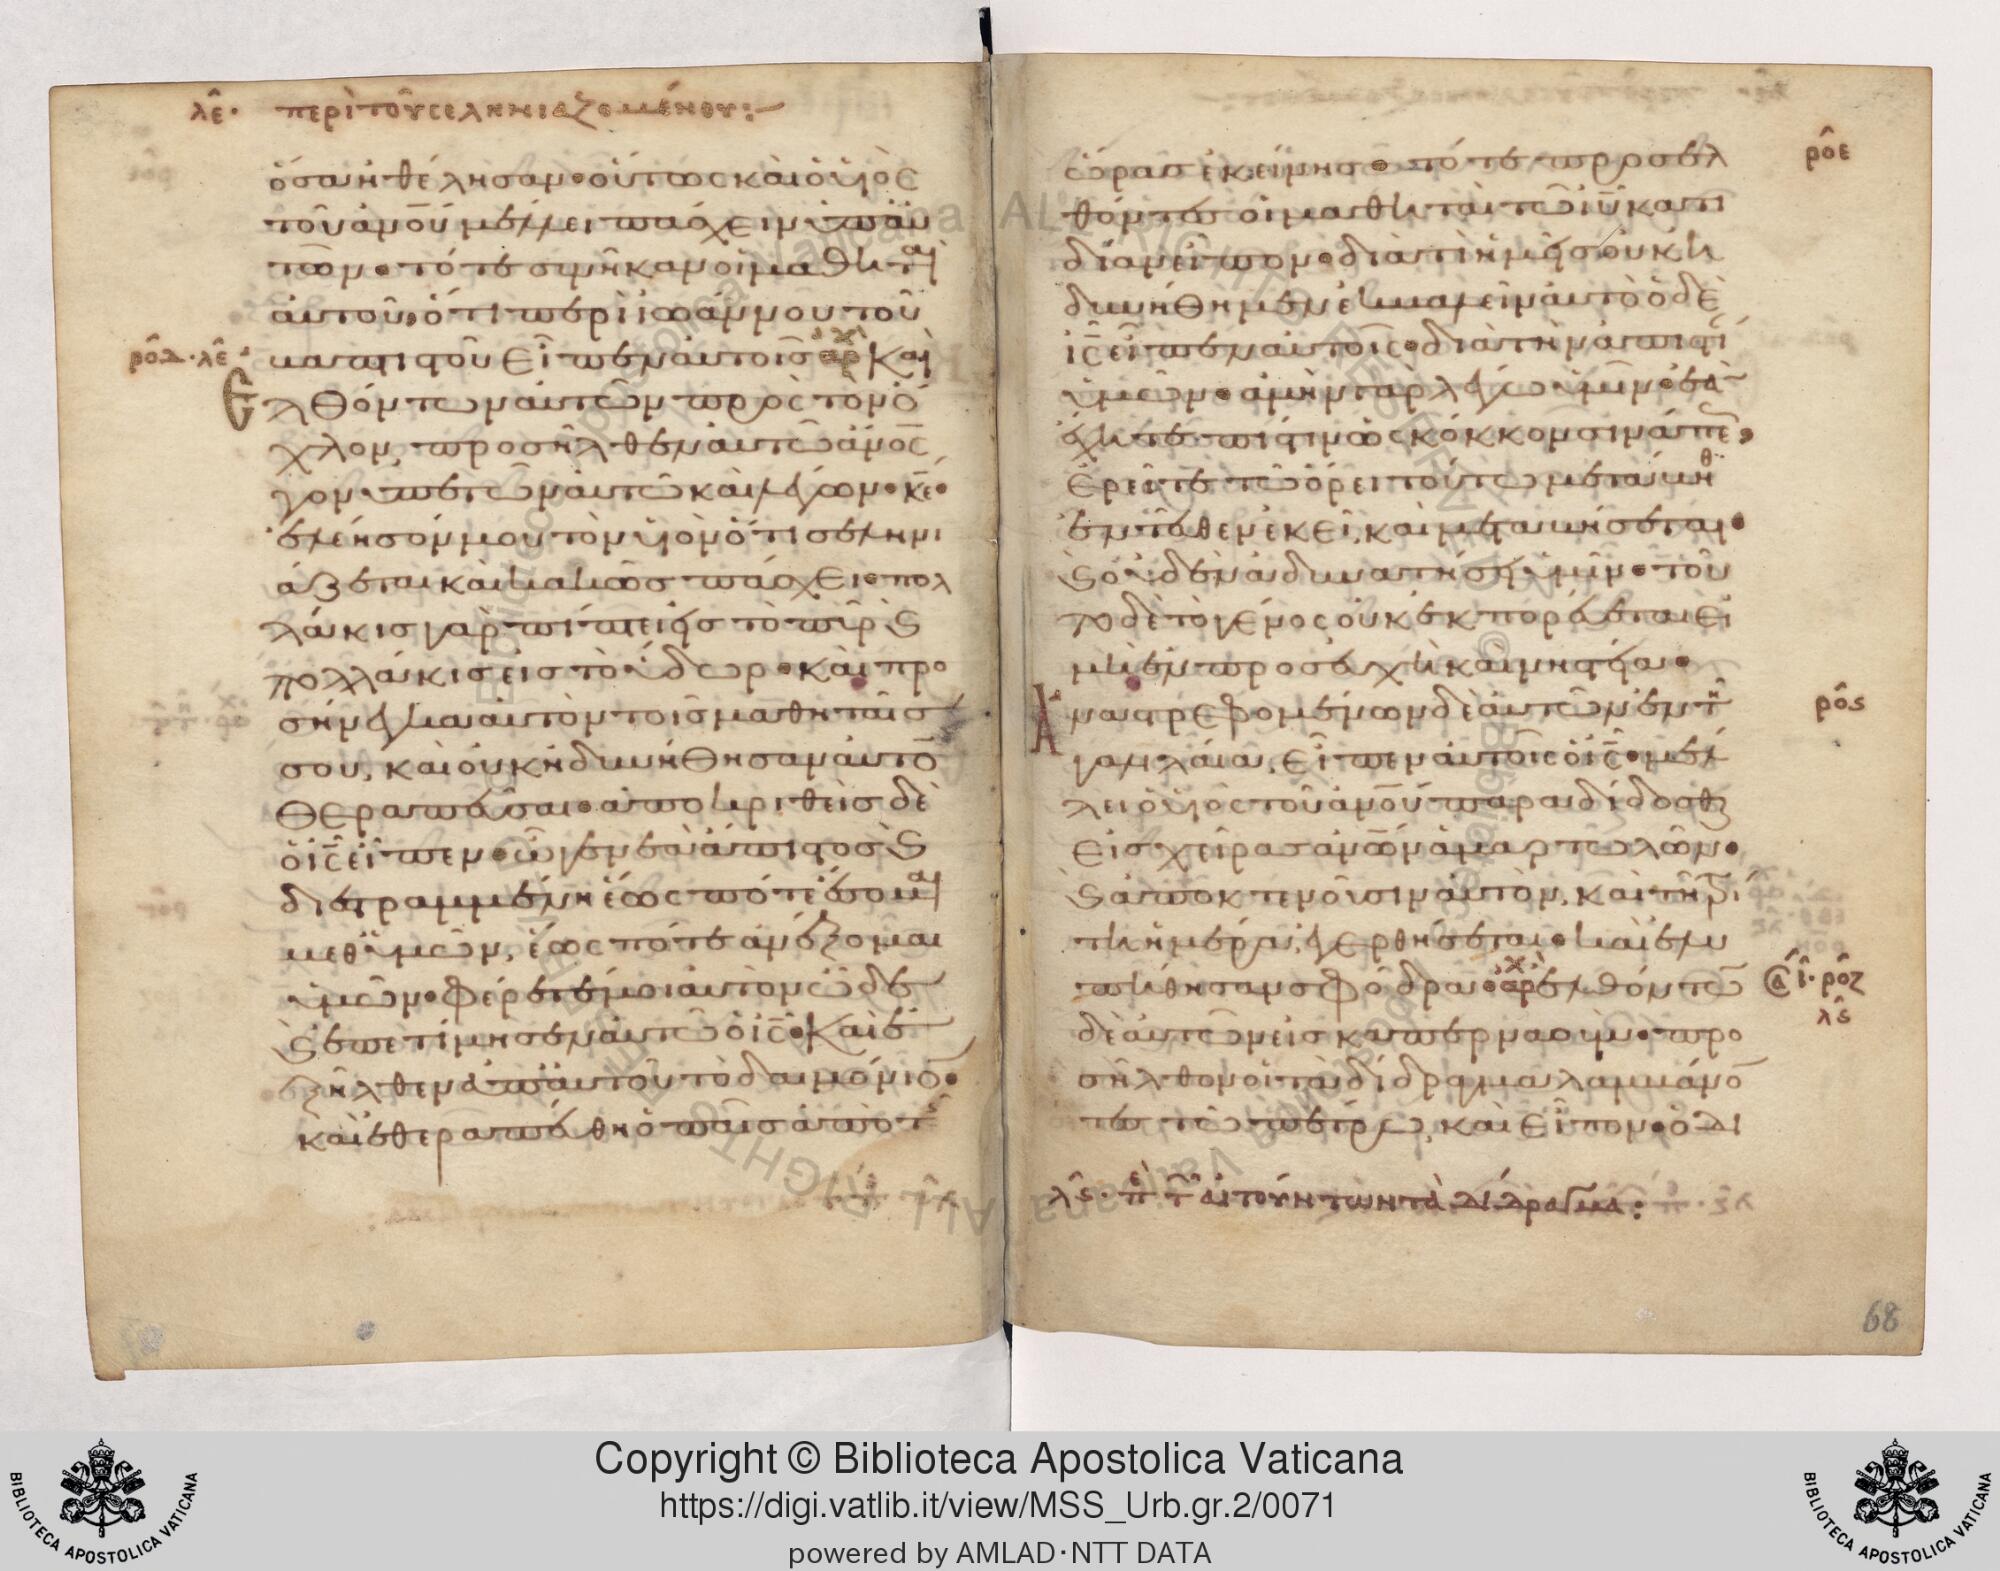 λε· περὶ τοῦ σεληνιαζομένου:
ὅσα ἠθέλησαν· οὕτως καὶ ὁ υἱὸς
τοῦ ἀνου μέλλει πάσχειν ὑπ αυ
τῶν· τότε συνῆκαν οἱ μαθηταὶ
αὐτοῦ, ὅτι περὶ ἰωάννου τοῦ
βαπτιστοῦ εἶπεν αὐτοῖς αρχ Καὶ
ροδ· λε
ἐλθόντων αὐτῶν πρὸς τὸν ὄ
χλον, προσῆλθεν αὐτῶ ἀνος
γονυπετῶν αὐτῶ καὶ λέγων· κε·
ἐλέησόν μου τὸν υἱὸν ὅτι σεληνι
άζεται καὶ κακῶς πάσχει· πολ
λάκις γὰρ πίπτει εἰς τὸ πῦρ ϗ
πολλάκις εἰς τὸ ὕδωρ· καὶ προ
σήνεγκα αὐτὸν τοῖς μαθηταῖς
σου, καὶ οὐκ ἠδυνήθησαν αὐτὸ
θεραπεῦσαι· ἀποκριθεὶς δὲ
ὁ ις εἶπεν· ὦ γενεὰ ἄπιστος ϗ
διεστραμμένη ἕως πότε ἔσομαι
μεθ ὑμῶν, ἕως πότε ἀνέξομαι
ὑμῶν· φέρετέ μοι αὐτὸν ὧδε
ϗ ἐπετίμησεν αὐτῶ ὁ ις· καὶ ἐ
ξῆλθεν ἀπ αὐτοῦ τὸ δαιμόνιο·
καὶ ἐθεραπεύθη ὁ παῖς ἀπὸ τῆς
ὥρας ἐκείνης· τότε προσελ
ροε
θόντες οἱ μαθηταὶ τῶ ιυ κατ ἰ
δίαν εἶπον· διατί ἡμεῖς οὐκ ἠ
δυνήθημεν ἐκβαλεῖν αὐτό· ὁ δὲ
ις εἶπεν αὐτοῖς· διὰ τὴν ἀπιστί
ὑμῶν· ἀμὴν γὰρ λέγω ὑμῖν· ἐὰ
ἔχητε πίστιν ὡς κόκκον σινάπεως,
ἐρεῖτε τῶ ὄρει τούτω μετάβηθι
ἐντεῦθεν ἐκεῖ, καὶ μεταβήσεται·
ϗ οὐδὲν ἀδυνατήσει ὑμῖν· τοῦ
το δὲ τὸ γένος οὐκ ἐκπορεύεται εἰ
μὴ ἐν προσευχῆ καὶ νηστεία·
Ἀναστρεφομένων δὲ αὐτῶν ἐν τῆ
ρος
γαλιλαία, εἶπεν αὐτοῖς ὁ ις· μέλ
λει ὁ υἱὸς τοῦ ἀνου παραδίδοσθαι
εἰς χεῖρας ἀνων ἁμαρτωλῶν·
ϗ ἀποκτενοῦσιν αὐτόν, καὶ τῆ τρί
τη ἡμέρα, ἐγερθήσεται· καὶ ἐλυ
πήθησαν σφόδρα· αρχ ἐλθόντω
ροζ
λς
δὲ αὐτῶν εἰς καπερναούμ· προ
σῆλθον οἱ τὰ δίδραγμα λαμβάνο
τες τῶ πέτρω, καὶ εἶπον· ὁ δι
λς· πε τῶν αἰτούντων τὰ δίδραγμα:
68
Copyright © Biblioteca Apostolica Vaticana
https://digi.vatlib.it/view/MSS_Urb.gr.2/0071
powered by AMLAD·NTT DATA
BIBLIOTECA APOSTOLICA VATICANA
BIBLIOTECA APOSTOLICA VATICANA